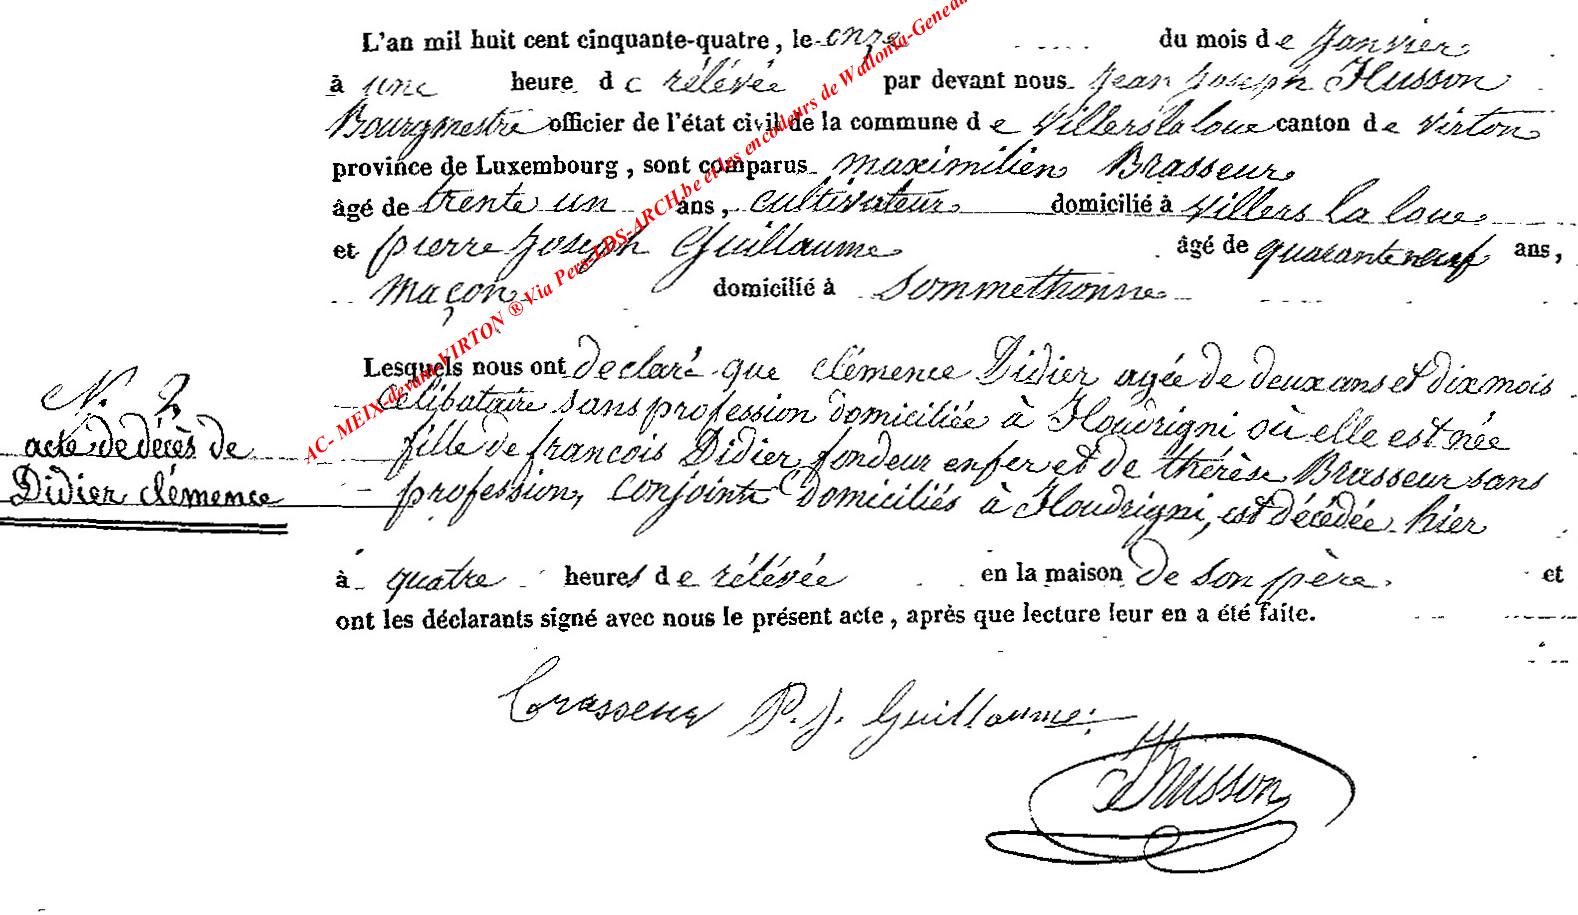 L'an mil huit cent cinquante-quatre, le onze du mois de Janvier
à une heure de rélévée par devant nous Jean Joseph Husson
Bourgmestre officier de l'état civil de la commune de Villers la loue canton de Virton
province de Luxembourg, sont comparus maximilien Brasseur
âgé de trente un ans, cultivateur domicilié à Villers la loue
et pierre Joseph Guillaume âgé de quarante neuf ans,
maçon domicilié à Sommethonne
Lesquels nous ont declaré que clémence Didier agée de deux ans et dix mois
Célibataire sans profession domiciliée à Houdrigni où elle est née
fille de francois Didier fondeur en fer et de thérèse Brasseur sans
profession, conjoints domiciliés à Houdrigni, est décédée hier
à quatre heures de rélévée en la maison de son père. et
ont les déclarants signé avec nous le présent acte, après que lecture leur en a été faite.
N. 2
acte de décès de
Didier clémence
Brasseur P. J. Guillaume
Husson
AC- MEIX-devant-VIRTON ® Via Pers-LDS-ARCH.be et les encodeurs de Wallonia-Genea